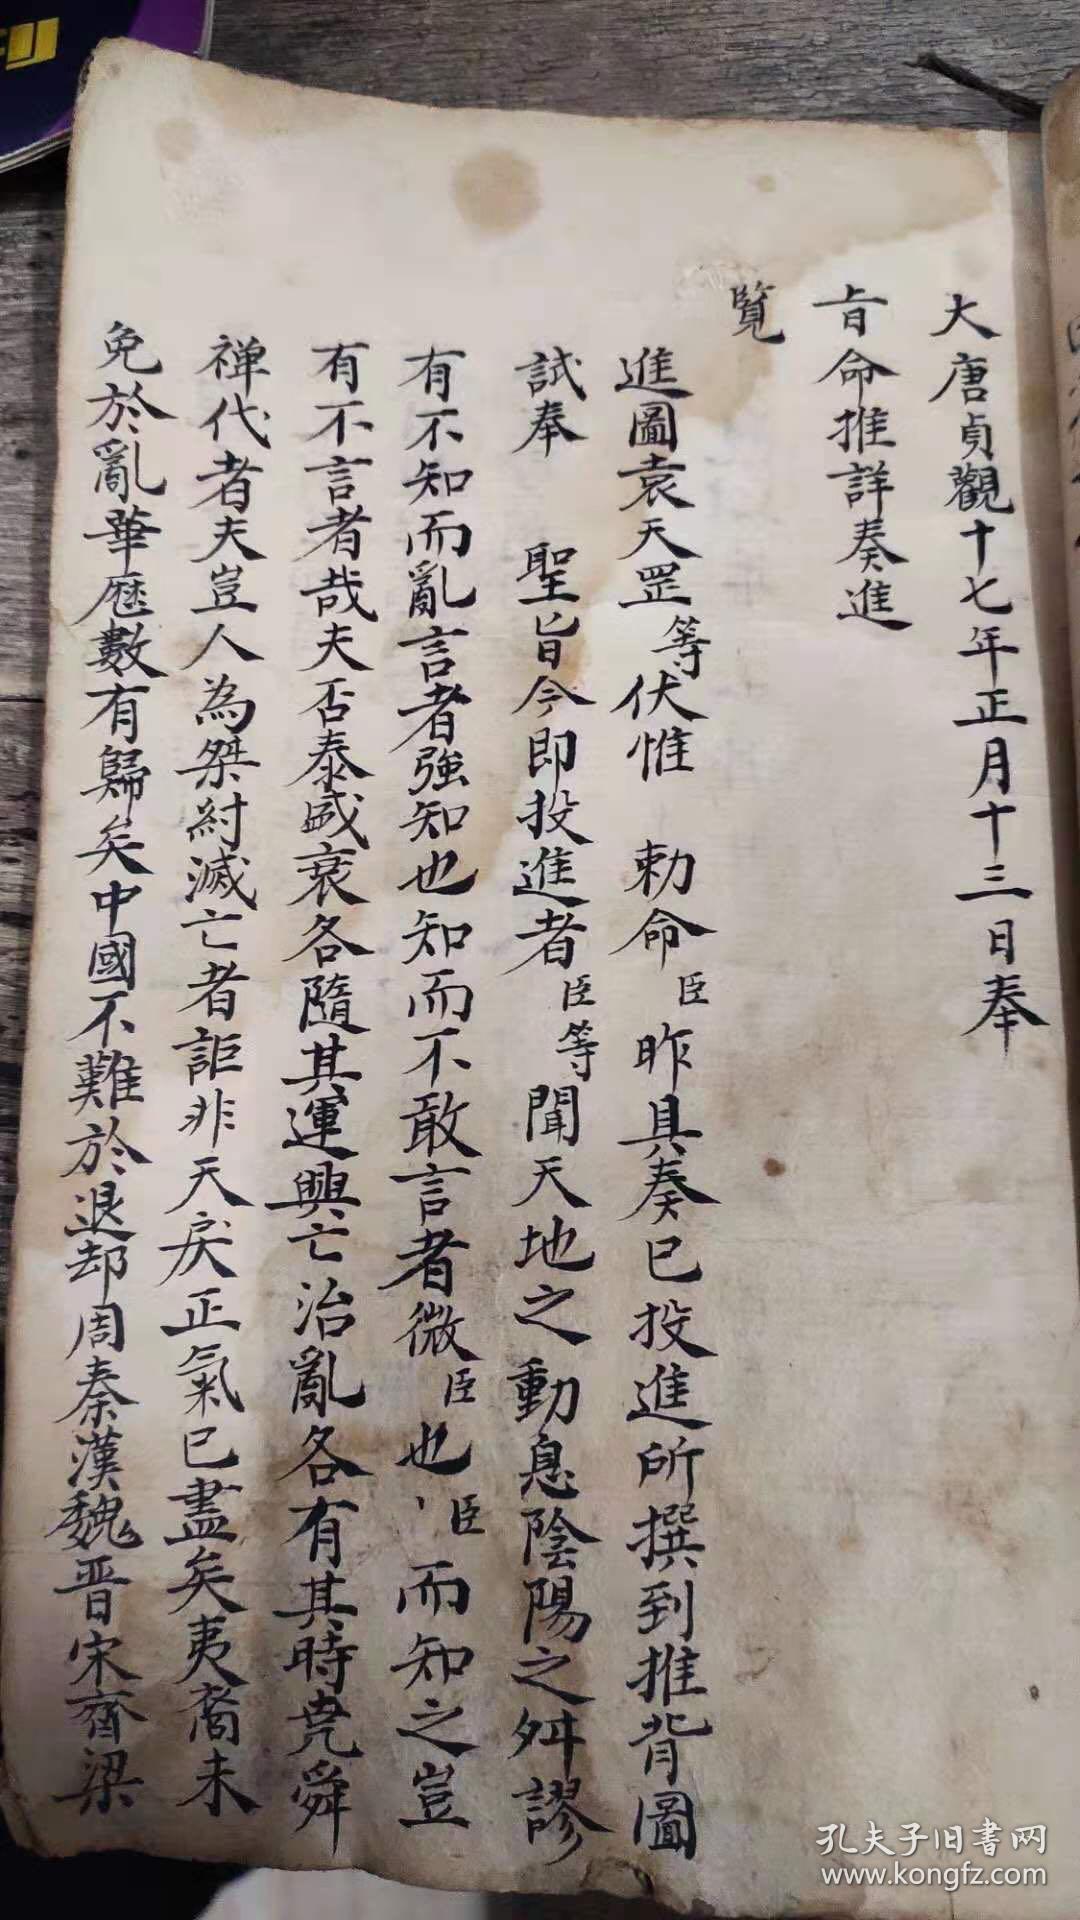 大唐貞觀十七年正月十三日奉
旨命推詳奏進
覽
進圖袁天罡等伏惟 勅命臣昨具奏已投進所撰到推背圖
試奉 聖旨今即投進者臣等聞天地之動息陰陽之舛謬
有不知而亂言者強知也知而不敢言者微臣也臣而知之豈
有不言者哉夫否泰盛衰各隨其運興亡治亂各有其時堯舜
禅代者夫豈人為桀紂滅亡者詎非天戾正氣已盡矣夷裔未
免於亂華歷數有歸矣中國不難於退却周秦漢魏晋宋齊梁
孔夫子旧書网
www.kongfz.com